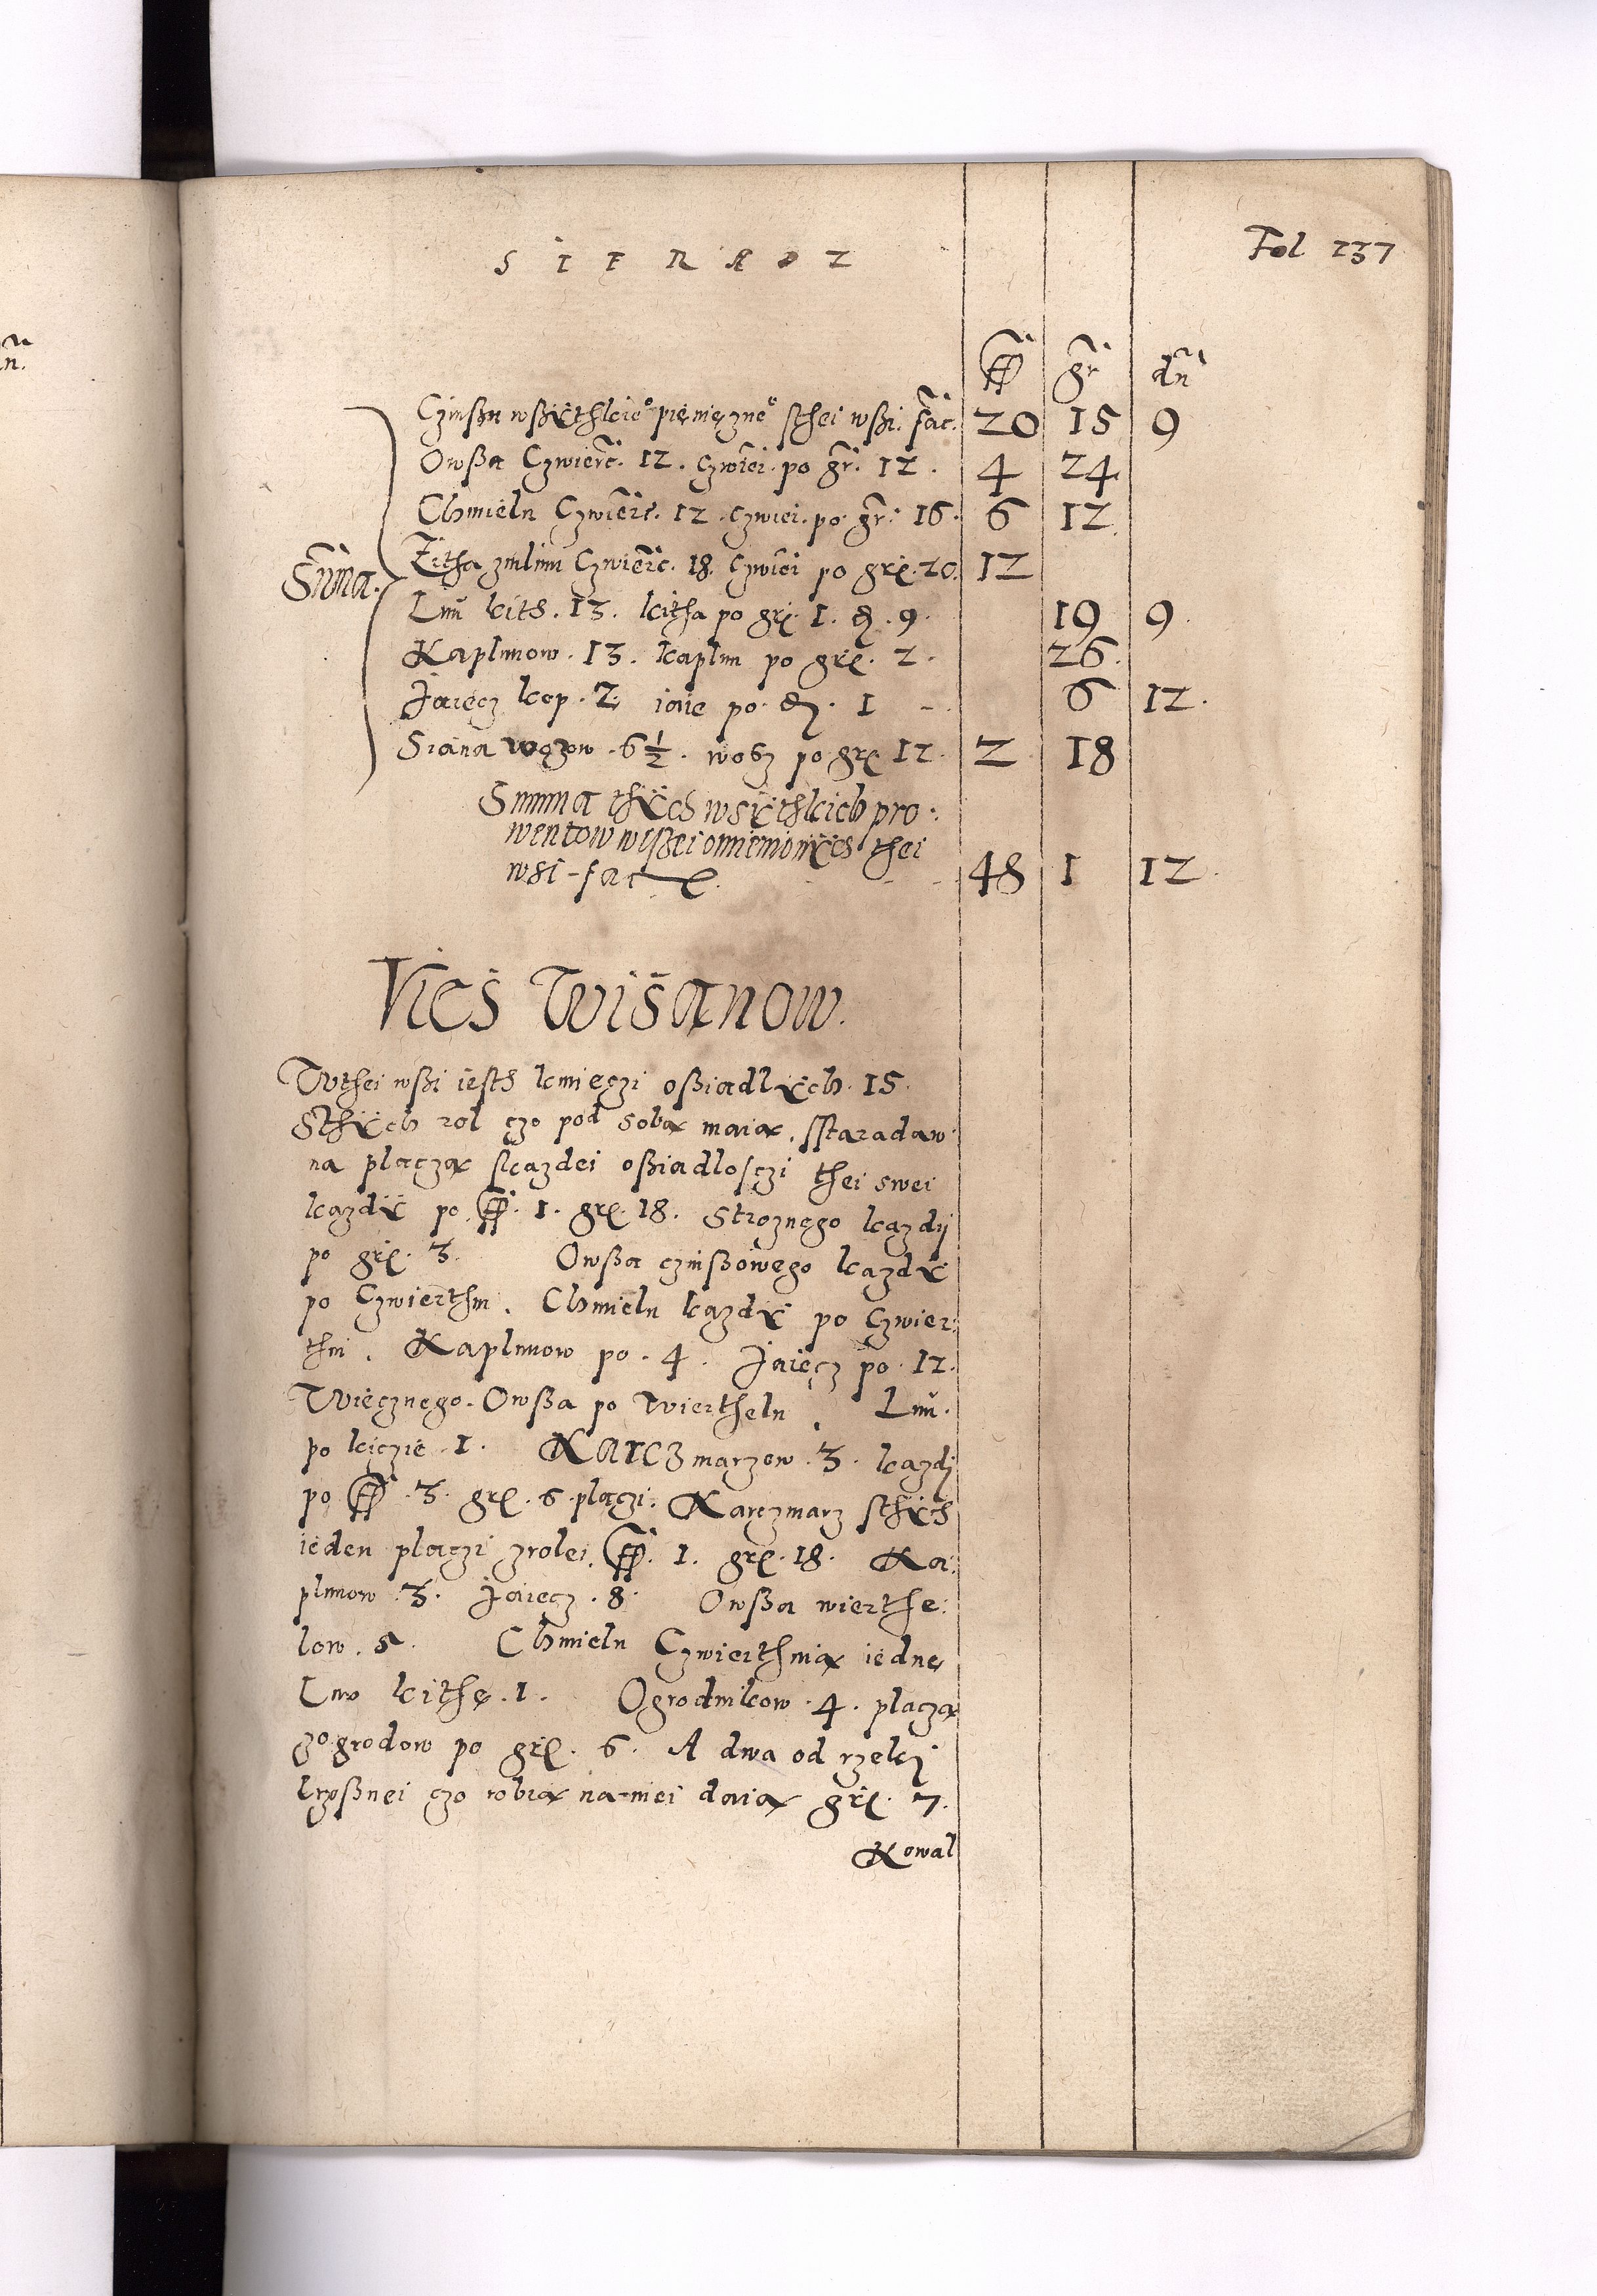 SIERADZ
Fol 137
fl gr dn
Czinssu wssÿthkie° pięnięzne° sthei wssi. fac. 20 15 9
Owssa Czwierc. 12. czwiei. po gr. 12. 4 24
Chmielu Czwierc. 12. czwiei. po gr. 16. 6 12
Zitha zmlinu Czwierc. 18. Czwiei po grę. 20. 12
Suma.
Lnu kith. 13. kitha po grę. 1. đ. 9. 19 9.
Kaplunow. 13. kaplun po grę. 2. 26.
Jaiecz kop. 2. iaie po. đ. 1 - 6 12.
Siana wozow. 6½. wosz po grę 12. 2 18
Summa thÿch wsÿthkich pro:
wentow wÿssei omieniónÿch thei
wsi - fac 48 1 12.
Vies Wisanow.
W thei wssi iesth kmięczi ossiadlÿch. 15.
Sthÿch rol czo pod sobą maią. sstaradaw
na placzą skazdei ossiadlosczi thei swei
kazdÿ po fl. 1. grę. 18. Stroznego kazdij
po grę. 3. Owssa czinssowego kazdÿ
po Czwierthni. Chmielu kazdÿ po Czwier:
thni. Kaplunow po. 4. Jaięcz po. 12.
Wiecznego. Owssa po Wierthelu. Lnu.
po kiczie. 1. Karczmarzow. 3. kazdj
po fl. 3. grę. 6. placzi. Karczmarz sthÿch
ieden placzi zrolei. fl. 1. grę. 18. Ka:
plunow. 3. Jaiecz. 8. Owssa wierthe:
low. 5. Chmielu Czwierthnią iednę
Lnu kithę. 1. Ogrodnikow. 4. placzą
zogrodow po grę. 6. A dwa od rzeki
krzossnei czo robią na niei daią grę. 7.
Kowal